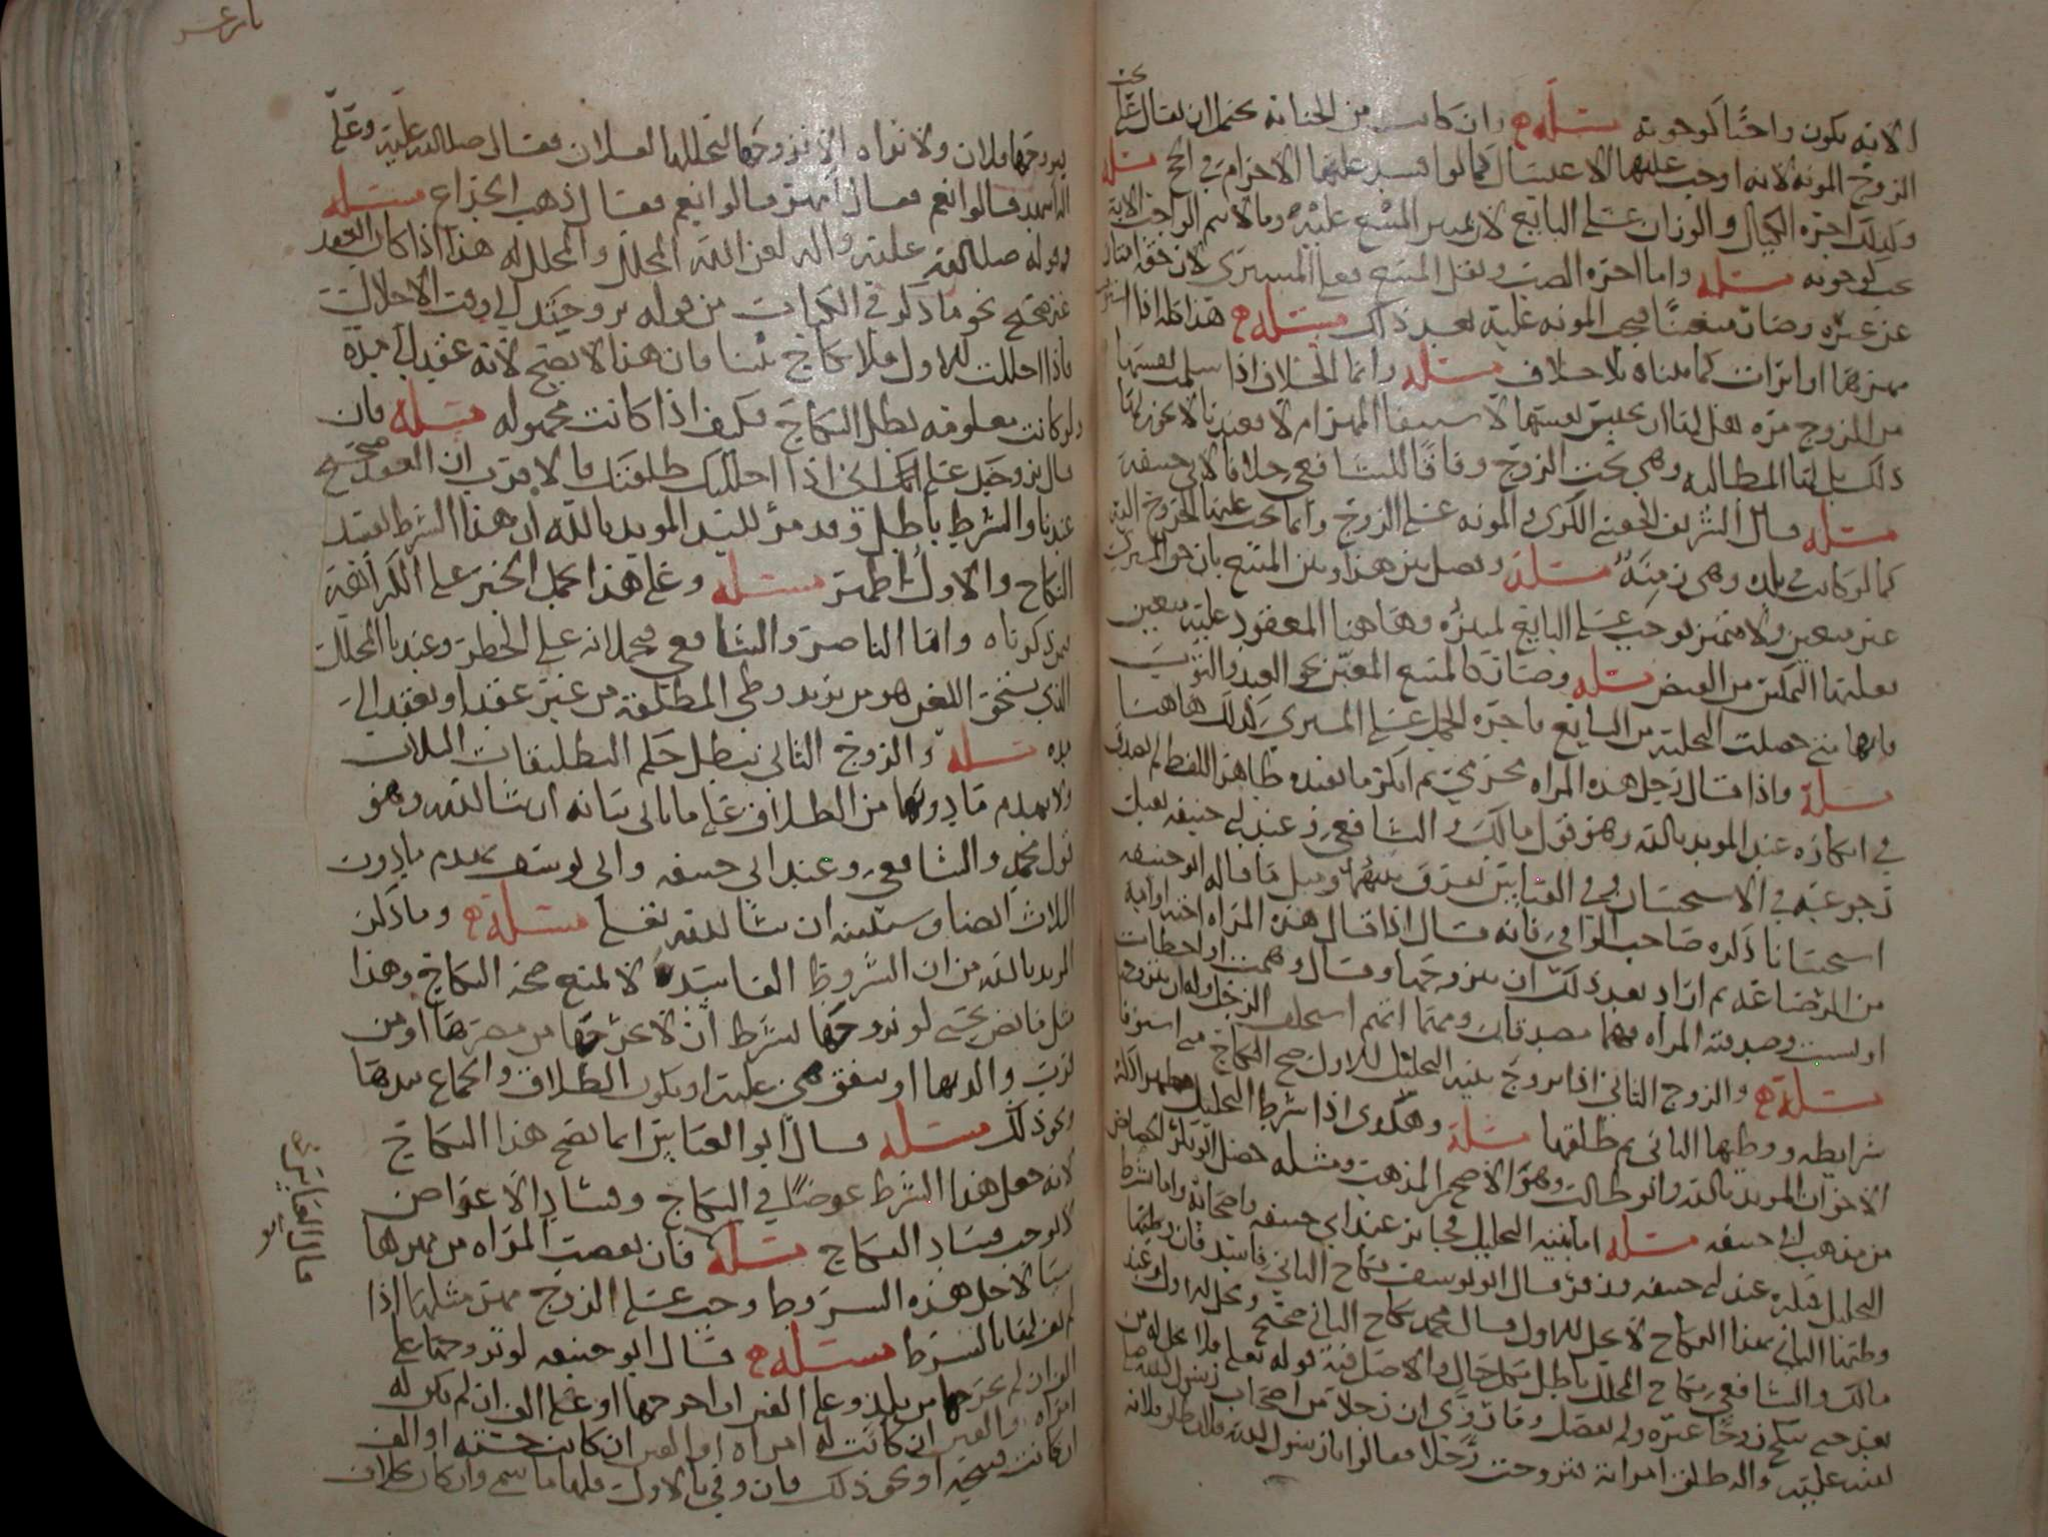 الا انه يكون واجبا كوجوبه مسئلة وان كانت من الجنابة يحتمل ان يقال على
الزوج المونه لانه اوجب عليها الاغتسال كما لو افسد عليها الاحرام في الحج مسئلة
وكذلك اجرة الكيال والوزان على البايع لان تمييز المبيع عليه وما لا يتم الواجب الا به
يجب كوجوبه مسئلة واما اجرة الصب ونقل المبيع فعلى المشتري لان حقه امتاز
عن غيره وصار متعينا فيجب المونه عليه بعد ذلك مسئلة هذا كله اذا
مهرها او ابرات كما بيناه بلا خلاف مسئلة وانما الخلاف اذا سلمت نفسها
من الزوج مره هل لها ان تحبس نفسها لاستيفا المهر ام لا فعندنا لا يجوز لها
ذلك بل لها المطالبه وهي تحت الزوج وفاقا للشافعي خلافا لابي حنيفه
مسئلة قال الشريف الكرى والمونه على الزوج وانما يجب عليها الخروج اليه
كما لو كانت في بلده وهي زمنة مسئلة ونفصل بين هذا وبين المبيع بان حق المشتري
غير متعين ولا متميز فوجب على البايع تمييزه وهاهنا المعقود عليه متعين
فعليها التمكين من القبض مسئلة وصار كالمبيع المعين نحو العبد والثوب
فانها متى حصلت التخلية من البايع فاجرة الحمل على المشتري كذلك هاهنا
مسئلة واذا قال رجل هذه المراه محرمي ثم انكر ما يفيده ظاهر اللفظ لم يصدق
في انكاره عند المويد بالله وهو قول مالك والشافعي وعند ابي حنيفه يقبل
رجوعه في الاستحسان وفي القياس يفرق بينهما ومثل ما قاله ابو حنيفه
استحسانا ذكره صاحب الوافي فانه قال اذا قال هذه المراه اختي او ابنة
من الرضاعة ثم اراد بعد ذلك ان يتزوجها وقال وهمت او اخطات
او نسيت وصدقته المراه فهما مصدقان ومتى اتهم استحلف الرجل وله ان يتزوجها
مسئلة والزوج الثاني اذا تزوج بنية التحليل للاول صح النكاح متى استوفا
شرايطه ووطيها الثاني ثم طلقها مسئلة وهكذا اذا شرط التحليل
الاخوان المويد بالله وابو طالب وهو الاصح من المذهب ومثله حصل ابو بكر الجصاص
من مذهب ابي حنيفه مسئلة اما بنية التحليل فجايز عند ابي حنيفه واصحابه واما بشرط
التحليل فكره عند ابي حنيفه وزفر وقال ابو يوسف نكاح الثاني فاسد فان وطيها
وطيها الثاني بهذا النكاح لا تحل للاول وقال محمد نكاح الثاني صحيح ولا تحل للاول وعند
مالك والشافعي نكاح المحلل باطل بكل حال والاصل فيه قوله تعلى فلا تحل له من
بعد حتى تنكح زوجا غيره ولم يفصل وقد روى ان رجلا من اصحاب رسول الله صلى
الله عليه واله طلق امراته فتزوجت رجلا فقالوا يا رسول الله فلان طلق فلانه
يتزوجها فلان ولا نراه الا تزوجها لتحللها لفلان فقال صلى الله عليه وعلى
اله اشهد قالوا نعم فقال امهر قالوا نعم فقال ذهب الخداع مسئلة
وقوله صلى الله عليه واله لعن الله المحلل والمحلل له هذا اذا كان العقد
غير صحيح نحو ما ذكر في الكتاب من قوله تزوجتك الى وقت الاحلال
فاذا احللت للاول فلا نكاح بيننا فان هذا لا يصح لانه عقد الى مدة
ولو كانت معلومه بطل النكاح فكيف اذا كانت مجهوله مسئلة فان
قال تزوجتك على اني اذا احللتك طلقتك فالاقرب ان العقد صحيح
عندنا والشرط باطل وقد مر للسيد المويد بالله ان هذا الشرط يفسد
النكاح والاول اظهر مسئلة وعلى هذا يحمل الخبر على الكراهية
فيما ذكرناه واما الناصر والشافعي فيحملانه على الحظر وعندنا المحلل
الذي يستحق اللعن هو من يريد وطي المطلقة من غير عقد او بعقد الى
مده مسئلة والزوج الثاني يبطل حكم التطليقات الثلاث
ولا يهدم ما دونها من الطلاق على ما ياتي بيانه ان شا الله وهو
قول محمد والشافعي وعند ابي حنيفه وابي يوسف يهدم ما دون
الثلاث ايضا وسنبينه ان شا الله تعلى مسئلة وما ذكره
المويد بالله من ان الشروط الفاسدة لا تمنع صحة النكاح وهذا
مثل ما نص يحيى لو تزوجها بشرط ان لا يخرجها من مصرها او من
قرب والديها او ينفق هي عليه او يكون الطلاق والجماع بيدها
ونحو ذلك مسئلة قال ابو العباس انما يصح هذا النكاح
لانه جعل هذا الشرط عوضا في النكاح وفساد الاعواض
لا يوجب فساد النكاح مسئلة فان نقصت المراه من مهرها
شيا لاجل هذه الشروط وجب على الزوج مهر مثلها اذا
لم يف لها بالشرط مسئلة قال ابو حنيفه لو تزوجها على
الف ان لم يخرجها من بلده وعلى الفين ان اخرجها او على الف ان لم يكن له
امراه والفين ان كانت له امراه او الفين ان كانت حسنه او الف
ان كانت قبيحة او نحو ذلك فان وفى بالاول فلها ما سمى وان كان بخلاف
قال ابو العباس